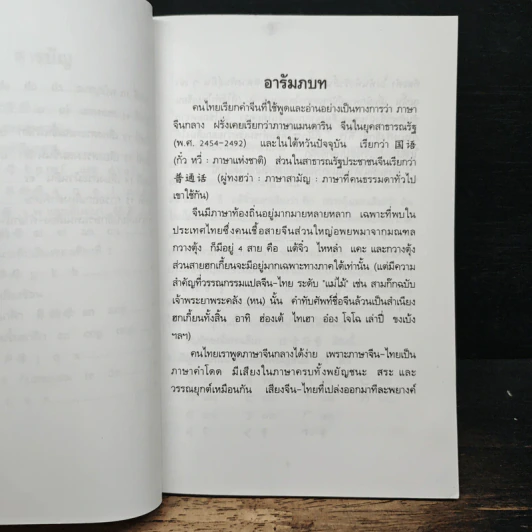 อารัมภบท
คนไทยเรียกคำจีนที่ใช้พูดและอ่านอย่างเป็นทางการว่า ภาษา
จีนกลาง ฝรั่งเคยเรียกว่าภาษาแมนดาริน จีนในยุคสาธารณรัฐ
(พ.ศ. 2454-2492) และในไต้หวันปัจจุบัน เรียกว่า 国语
(กั๋ว หวี่ : ภาษาแห่งชาติ) ส่วนในสาธารณรัฐประชาชนจีนเรียกว่า
普通话 (ผู่ทงฮว่า : ภาษาสามัญ : ภาษาที่คนธรรมดาทั่วไป
เขาใช้กัน)
จีนมีภาษาท้องถิ่นอยู่มากมายหลายหลาก เฉพาะที่พบใน
ประเทศไทยซึ่งคนเชื้อสายจีนส่วนใหญ่อพยพมาจากมณฑล
กวางตุ้ง ก็มีอยู่ 4 สาย คือ แต้จิ๋ว ไหหลำ แคะ และกวางตุ้ง
ส่วนสายฮกเกี้ยนจะมีอยู่มากเฉพาะทางภาคใต้เท่านั้น (แต่มีความ
สำคัญที่วรรณกรรมแปลจีน-ไทย ระดับ "แม่ไม้" เช่น สามก๊กฉบับ
เจ้าพระยาพระคลัง (หน) นั้น คำทับศัพท์ชื่อจีนล้วนเป็นสำเนียง
ฮกเกี้ยนทั้งสิ้น อาทิ ฮ่องเต้ ไทเฮา อ๋อง โจโฉ เล่าปี่ ขงเบ้ง
ฯลฯ)
คนไทยเราพูดภาษาจีนกลางได้ง่าย เพราะภาษาจีน-ไทยเป็น
ภาษาคำโดด มีเสียงในภาษาครบทั้งพยัญชนะ สระ และ
วรรณยุกต์เหมือนกัน เสียงจีน-ไทยที่เปล่งออกมาทีละพยางค์